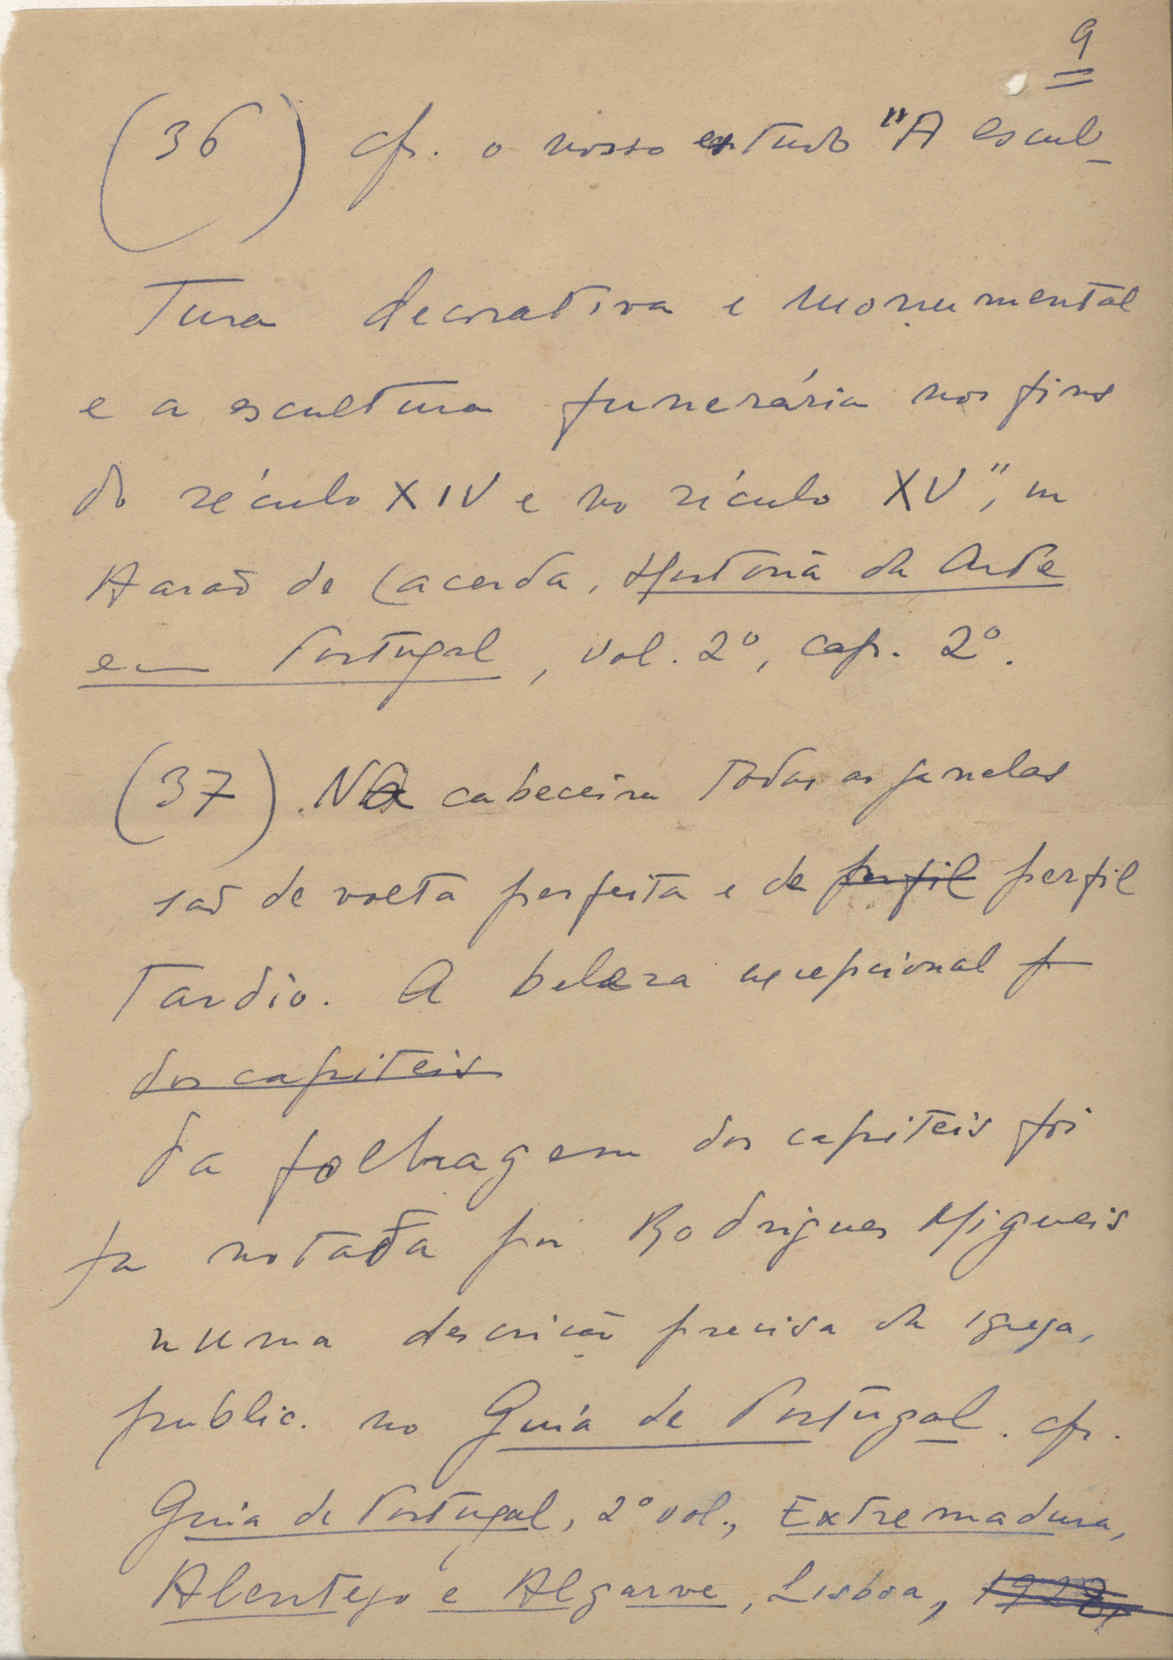 9
(36) cfr. o nosso estudo "A escul-
tura decorativa e monumental
e a escultura funerária nos fins
do século XIV e no século XV", in
Aarão de Lacerda, História da Arte
em Portugal, vol. 2º, cap. 2º.
(37). Na cabeceira todas as janelas
são de volta perfeita e de perfil perfil
tardio. A beleza excepcional
dos capiteis
da folhagem dos capiteis foi
ja notada por Rodrigues Migueis
numa descrição precisa da igreja,
public. no Guia de Portugal. cfr.
Guia de Portugal, 2º vol., Extremadura,
Alentejo e Algarve, Lisboa, 1928,